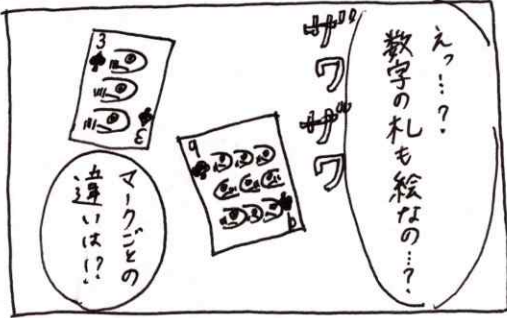 えっ…?
数字の札も絵なの…?
ザワザワ
3
3
9
9
マークごとの
違いは!?